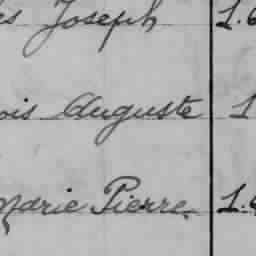 Joseph 1.6
ois Auguste 1
Marie Pierre 1.6